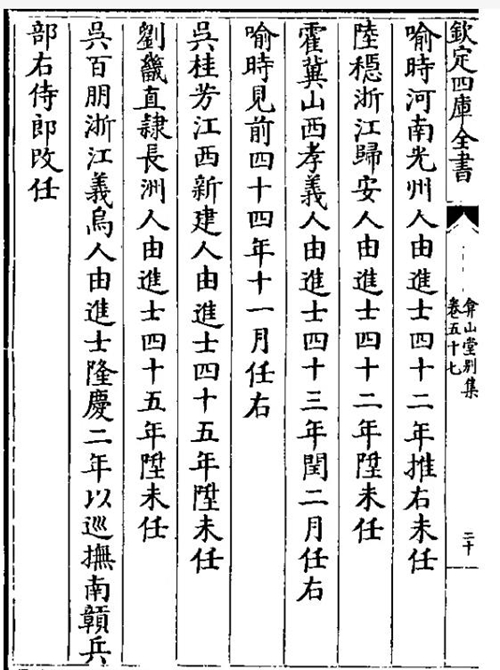 欽定四庫全書
弇山堂别集
卷五十七
二十
喻時河南光州人由進士四十二年推右未任
陸穏浙江歸安人由進士四十二年陞未任
霍冀山西孝義人由進士四十三年閏二月任右
喻時見前四十四年十一月任右
吳桂芳江西新建人由進士四十五年陞未任
劉畿直隷長洲人由進士四十五年陞未任
吳百朋浙江義烏人由進士隆慶二年以巡撫南贛兵
部右侍郎改任